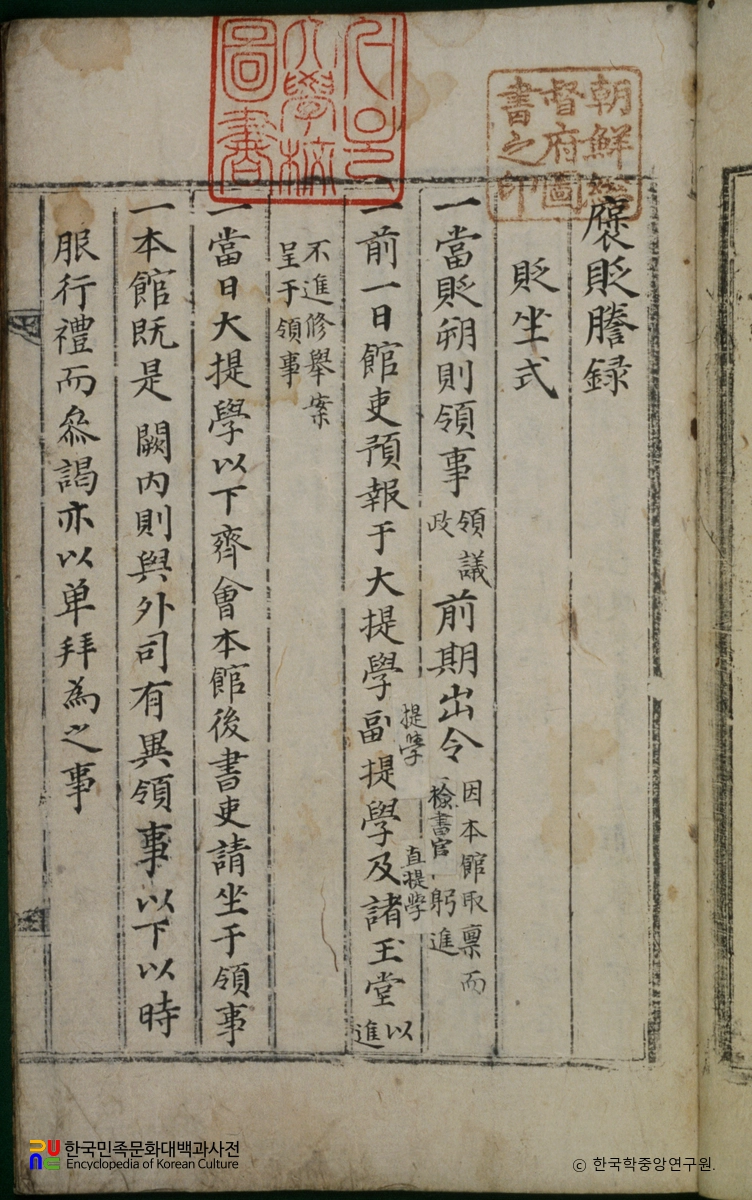 褒貶謄録
貶坐式
一當貶朔則領事領議政前期出令因本館取稟而檢書官躬進
一前一日館吏預報于大提學提學副提學直提學及諸玉堂以進
不進修舉案呈于領事
一當日大提學以下齊會本館後書吏請坐于領事
一本館既是 闕内則與外司有異領事以下以時
服行禮而叅謁亦以单拜為之事
朝鮮總督府圖書之印
서울大學校圖書
한국민족문화대백과사전
Encyclopedia of Korean Culture
© 한국학중앙연구원.